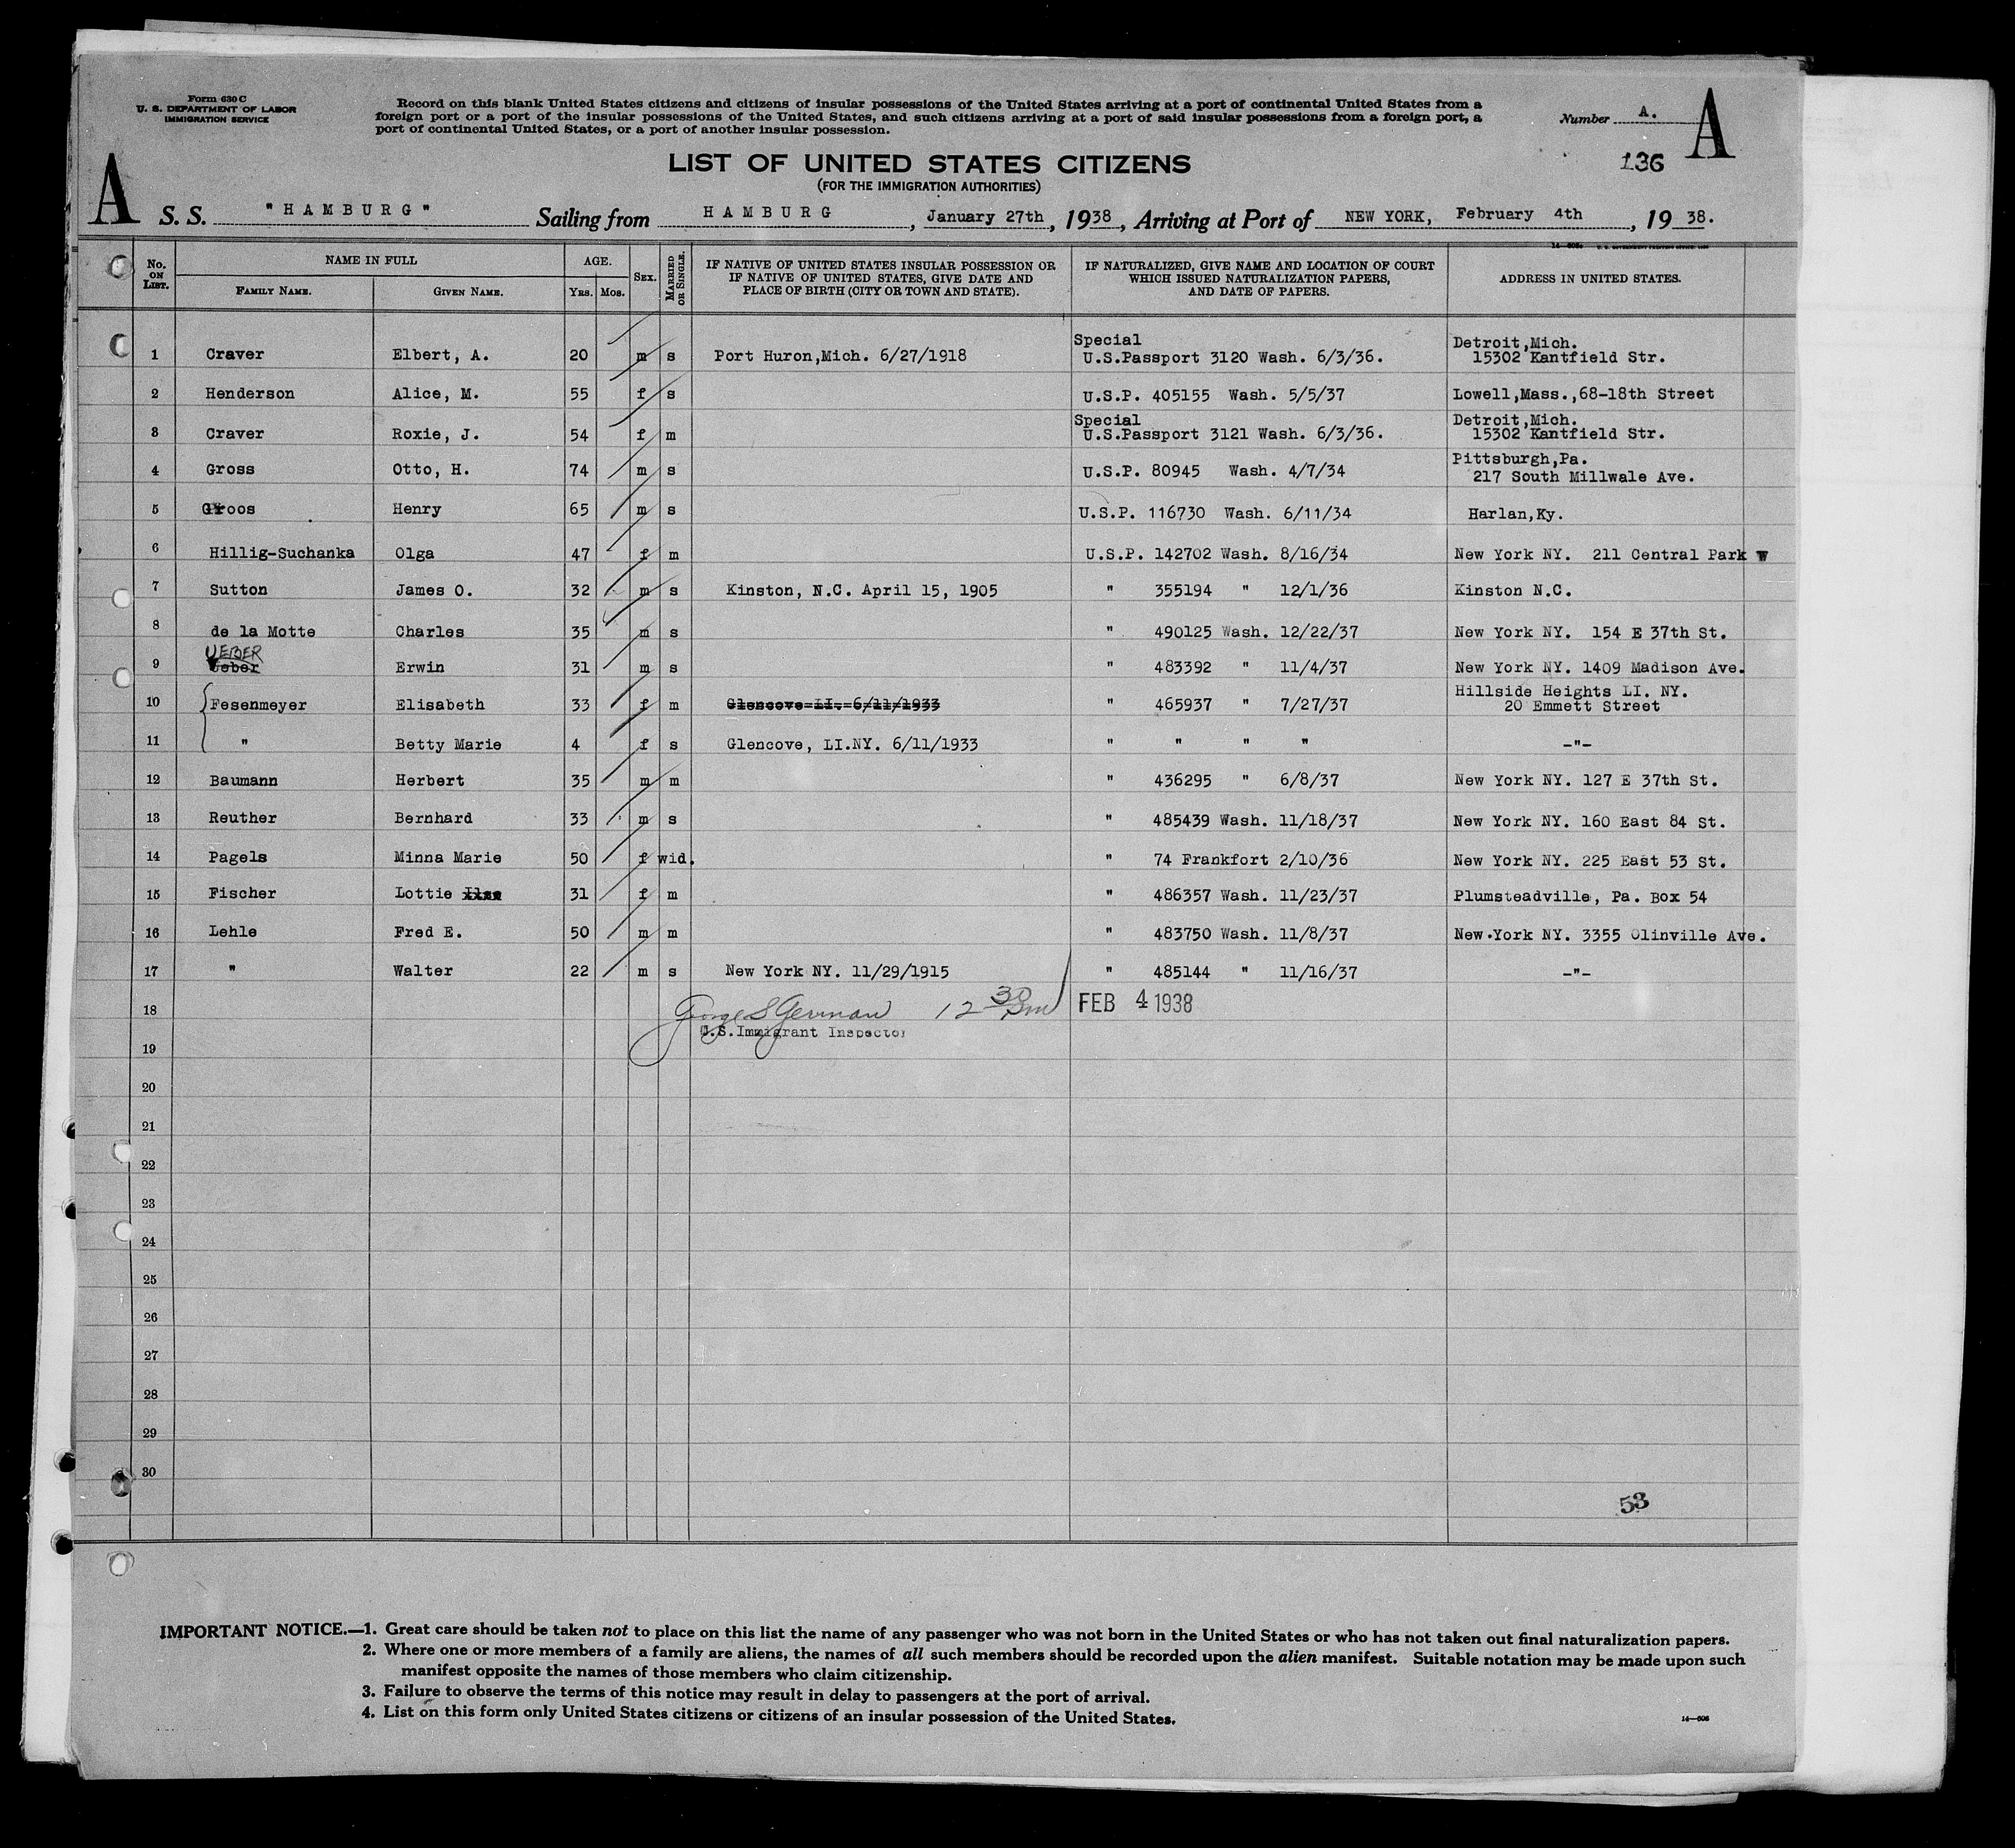 Form 630 C
U. S. DEPARTMENT OF LABOR
IMMIGRATION SERVICE
Record on this blank United States citizens and citizens of insular possessions of the United States arriving at a port of continental United States from a
foreign port or a port of the insular possessions of the United States, and such citizens arriving at a port of said insular possessions from a foreign port, a
port of continental United States, or a port of another insular possession.
Number A.
A
136
LIST OF UNITED STATES CITIZENS
(FOR THE IMMIGRATION AUTHORITIES)
A S. S. "HAMBURG" Sailing from HAMBURG, January 27th, 1938, Arriving at Port of NEW YORK, February 4th, 1938.
No. ON LIST. NAME IN FULL FAMILY NAME. GIVEN NAME. AGE. YRS. MOS. SEX. MARRIED OR SINGLE. IF NATIVE OF UNITED STATES INSULAR POSSESSION OR IF NATIVE OF UNITED STATES, GIVE DATE AND PLACE OF BIRTH (CITY OR TOWN AND STATE). IF NATURALIZED, GIVE NAME AND LOCATION OF COURT WHICH ISSUED NATURALIZATION PAPERS, AND DATE OF PAPERS. ADDRESS IN UNITED STATES.
1 Craver Elbert, A. 20 m s Port Huron,Mich. 6/27/1918 Special U.S.Passport 3120 Wash. 6/3/36. Detroit,Mich. 15302 Kantfield Str.
2 Henderson Alice, M. 55 f s U.S.P. 405155 Wash. 5/5/37 Lowell,Mass.,68-18th Street
3 Craver Roxie, J. 54 f m Special U.S.Passport 3121 Wash. 6/3/36. Detroit,Mich. 15302 Kantfield Str.
4 Gross Otto, H. 74 m s U.S.P. 80945 Wash. 4/7/34 Pittsburgh,Pa. 217 South Millwale Ave.
5 Groos Henry 65 m s U.S.P. 116730 Wash. 6/11/34 Harlan,Ky.
6 Hillig-Suchanka Olga 47 f m U.S.P. 142702 Wash. 8/16/34 New York NY. 211 Central Park W
7 Sutton James O. 32 m s Kinston, N.C. April 15, 1905 " 355194 " 12/1/36 Kinston N.C.
8 de la Motte Charles 35 m s " 490125 Wash. 12/22/37 New York NY. 154 E 37th St.
UEBER
9 Ueber Erwin 31 m s " 483392 " 11/4/37 New York NY. 1409 Madison Ave.
10 Fesenmeyer Elisabeth 33 f m Glencove LI. 6/11/1933 " 465937 " 7/27/37 Hillside Heights LI. NY. 20 Emmett Street
11 " Betty Marie 4 f s Glencove, LI.NY. 6/11/1933 " " " " -"-
12 Baumann Herbert 35 m m " 436295 " 6/8/37 New York NY. 127 E 37th St.
13 Reuther Bernhard 33 m s " 485439 Wash. 11/18/37 New York NY. 160 East 84 St.
14 Pagels Minna Marie 50 f wid. " 74 Frankfort 2/10/36 New York NY. 225 East 53 St.
15 Fischer Lottie 31 f m " 486357 Wash. 11/23/37 Plumsteadville, Pa. Box 54
16 Lehle Fred E. 50 m m " 483750 Wash. 11/8/37 New York NY. 3355 Olinville Ave.
17 " Walter 22 m s New York NY. 11/29/1915 " 485144 " 11/16/37 -"-
18 George S German 12 30 pm FEB 4 1938
U.S.Immigrant Inspector
19
20
21
22
23
24
25
26
27
28
29
30
53
IMPORTANT NOTICE.—1. Great care should be taken not to place on this list the name of any passenger who was not born in the United States or who has not taken out final naturalization papers.
2. Where one or more members of a family are aliens, the names of all such members should be recorded upon the alien manifest. Suitable notation may be made upon such
manifest opposite the names of those members who claim citizenship.
3. Failure to observe the terms of this notice may result in delay to passengers at the port of arrival.
4. List on this form only United States citizens or citizens of an insular possession of the United States.
14—606